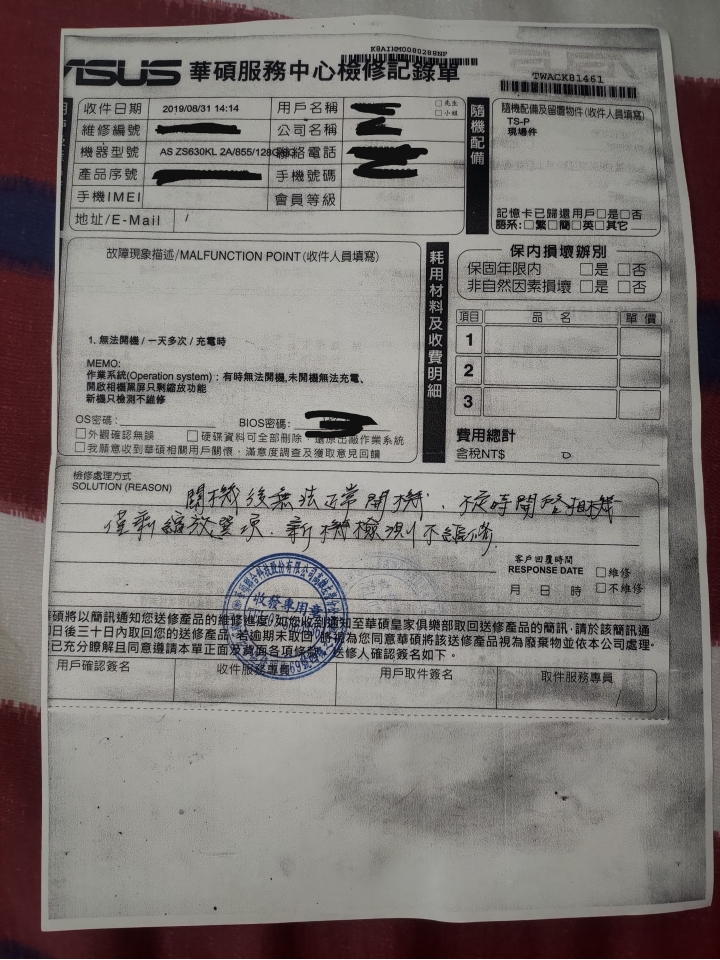 KBAIHM0080288NF
ASUS 華碩服務中心檢修記錄單
TWACK81461
收件日期 2019/08/31 14:14 用戶名稱 □先生 □小姐
維修編號 公司名稱
機器型號 AS ZS630KL 2A/855/128G 聯絡電話
產品序號 手機號碼
手機IMEI 會員等級
地址/E-Mail /
隨機配備
隨機配備及留置物件(收件人員填寫)
TS-P
現場件
記憶卡已歸還用戶□是□否
語系:□繁□簡□英□其它
故障現象描述/MALFUNCTION POINT(收件人員填寫)
1. 無法開機 / 一天多次 / 充電時
MEMO:
作業系統(Operation system) : 有時無法開機,未開機無法充電、
開啟相機黑屏只剩縮放功能
新機只檢測不維修
OS密碼: BIOS密碼:
□外觀確認無誤 □硬碟資料可全部刪除，還原出廠作業系統
□我願意收到華碩相關用戶關懷，滿意度調查及獲取意見回饋
耗用材料及收費明細
保內損壞辦別
保固年限內 □是 □否
非自然因素損壞 □是 □否
項目 品名 單價
1
2
3
費用總計
含稅NT$ 0
檢修處理方式
SOLUTION (REASON)
關機後無法正常開機、不定時開啓相機
僅剩縮放選項. 新機檢測不維修.
客戶回覆時間
RESPONSE DATE □維修
月 日 時 □不維修
收發專用章
碩將以簡訊通知您送修產品的維修進度,如您收到通知至華碩皇家俱樂部取回送修產品的簡訊,請於該簡訊通
日後三十日內取回您的送修產品,若逾期未取回,將視為您同意華碩將該送修產品視為廢棄物並依本公司處理.
已充分瞭解且同意遵請本單正面及背面各項條款，送修人確認簽名如下。
用戶確認簽名 收件服務專員 用戶取件簽名 取件服務專員